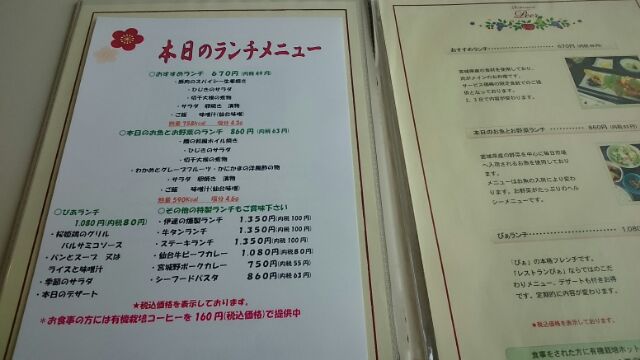 本日のランチメニュー
○おすすめランチ 670円(内税49円)
・豚肉のスパイシー生姜焼き
・ひじきのサラダ
・切干大根の煮物
・サラダ 卵焼き 漬物
・ご飯 味噌汁(仙台味噌)
○本日のお魚とお野菜のランチ 860円(内税63円)
・鯛の和風ホイル焼き
・ひじきのサラダ
・切干大根の煮物
・わかめとグレープフルーツ・かにかまの洋風酢の物
・サラダ 卵焼き 漬物
・ご飯 味噌汁(仙台味噌)
熱量 590Kcal 塩分 4.6g
○ぴあランチ
1,080円(内税80円)
・桜姫鶏のグリル
バルサミコソース
・パンとスープ 又は
ライスと味噌汁
・季節のサラダ
・本日のデザート
○その他の特製ランチもご賞味下さい
・伊達の燻製ランチ 1,350円(内税100円)
・牛タンランチ 1,350円(内税100円)
・ステーキランチ 1,350円(内税100円)
・仙台牛ビーフカレー 1,080円(内税80円)
・宮城野ポークカレー 750円(内税55円)
・シーフードパスタ 860円(内税63円)
★税込価格を表示しております。
*お食事の方には有機栽培コーヒーを160円(税込価格)で提供中
おすすめランチ 670円(内税49円)
宮城県産の食材を使用しており、
サービス価格の限定食試でのご提
供となっております。
本日のお魚とお野菜ランチ 860円
宮城県産の野菜を中心に毎日市場
へ入荷されるお魚を使用しており
ます。
メニューはお魚の入荷により変わ
ります。お野菜がたっぷりのヘル
シーメニューです。
ぴあランチ 1,080
「ぴぁ」の本格フレンチです。
「レストランぴぁ」ならではのこだ
わりメニュー、デザートも付きお得
です。定期的に内容が変わります。
★税込価格を表示しております。
食事をされた方に有機栽培ホット